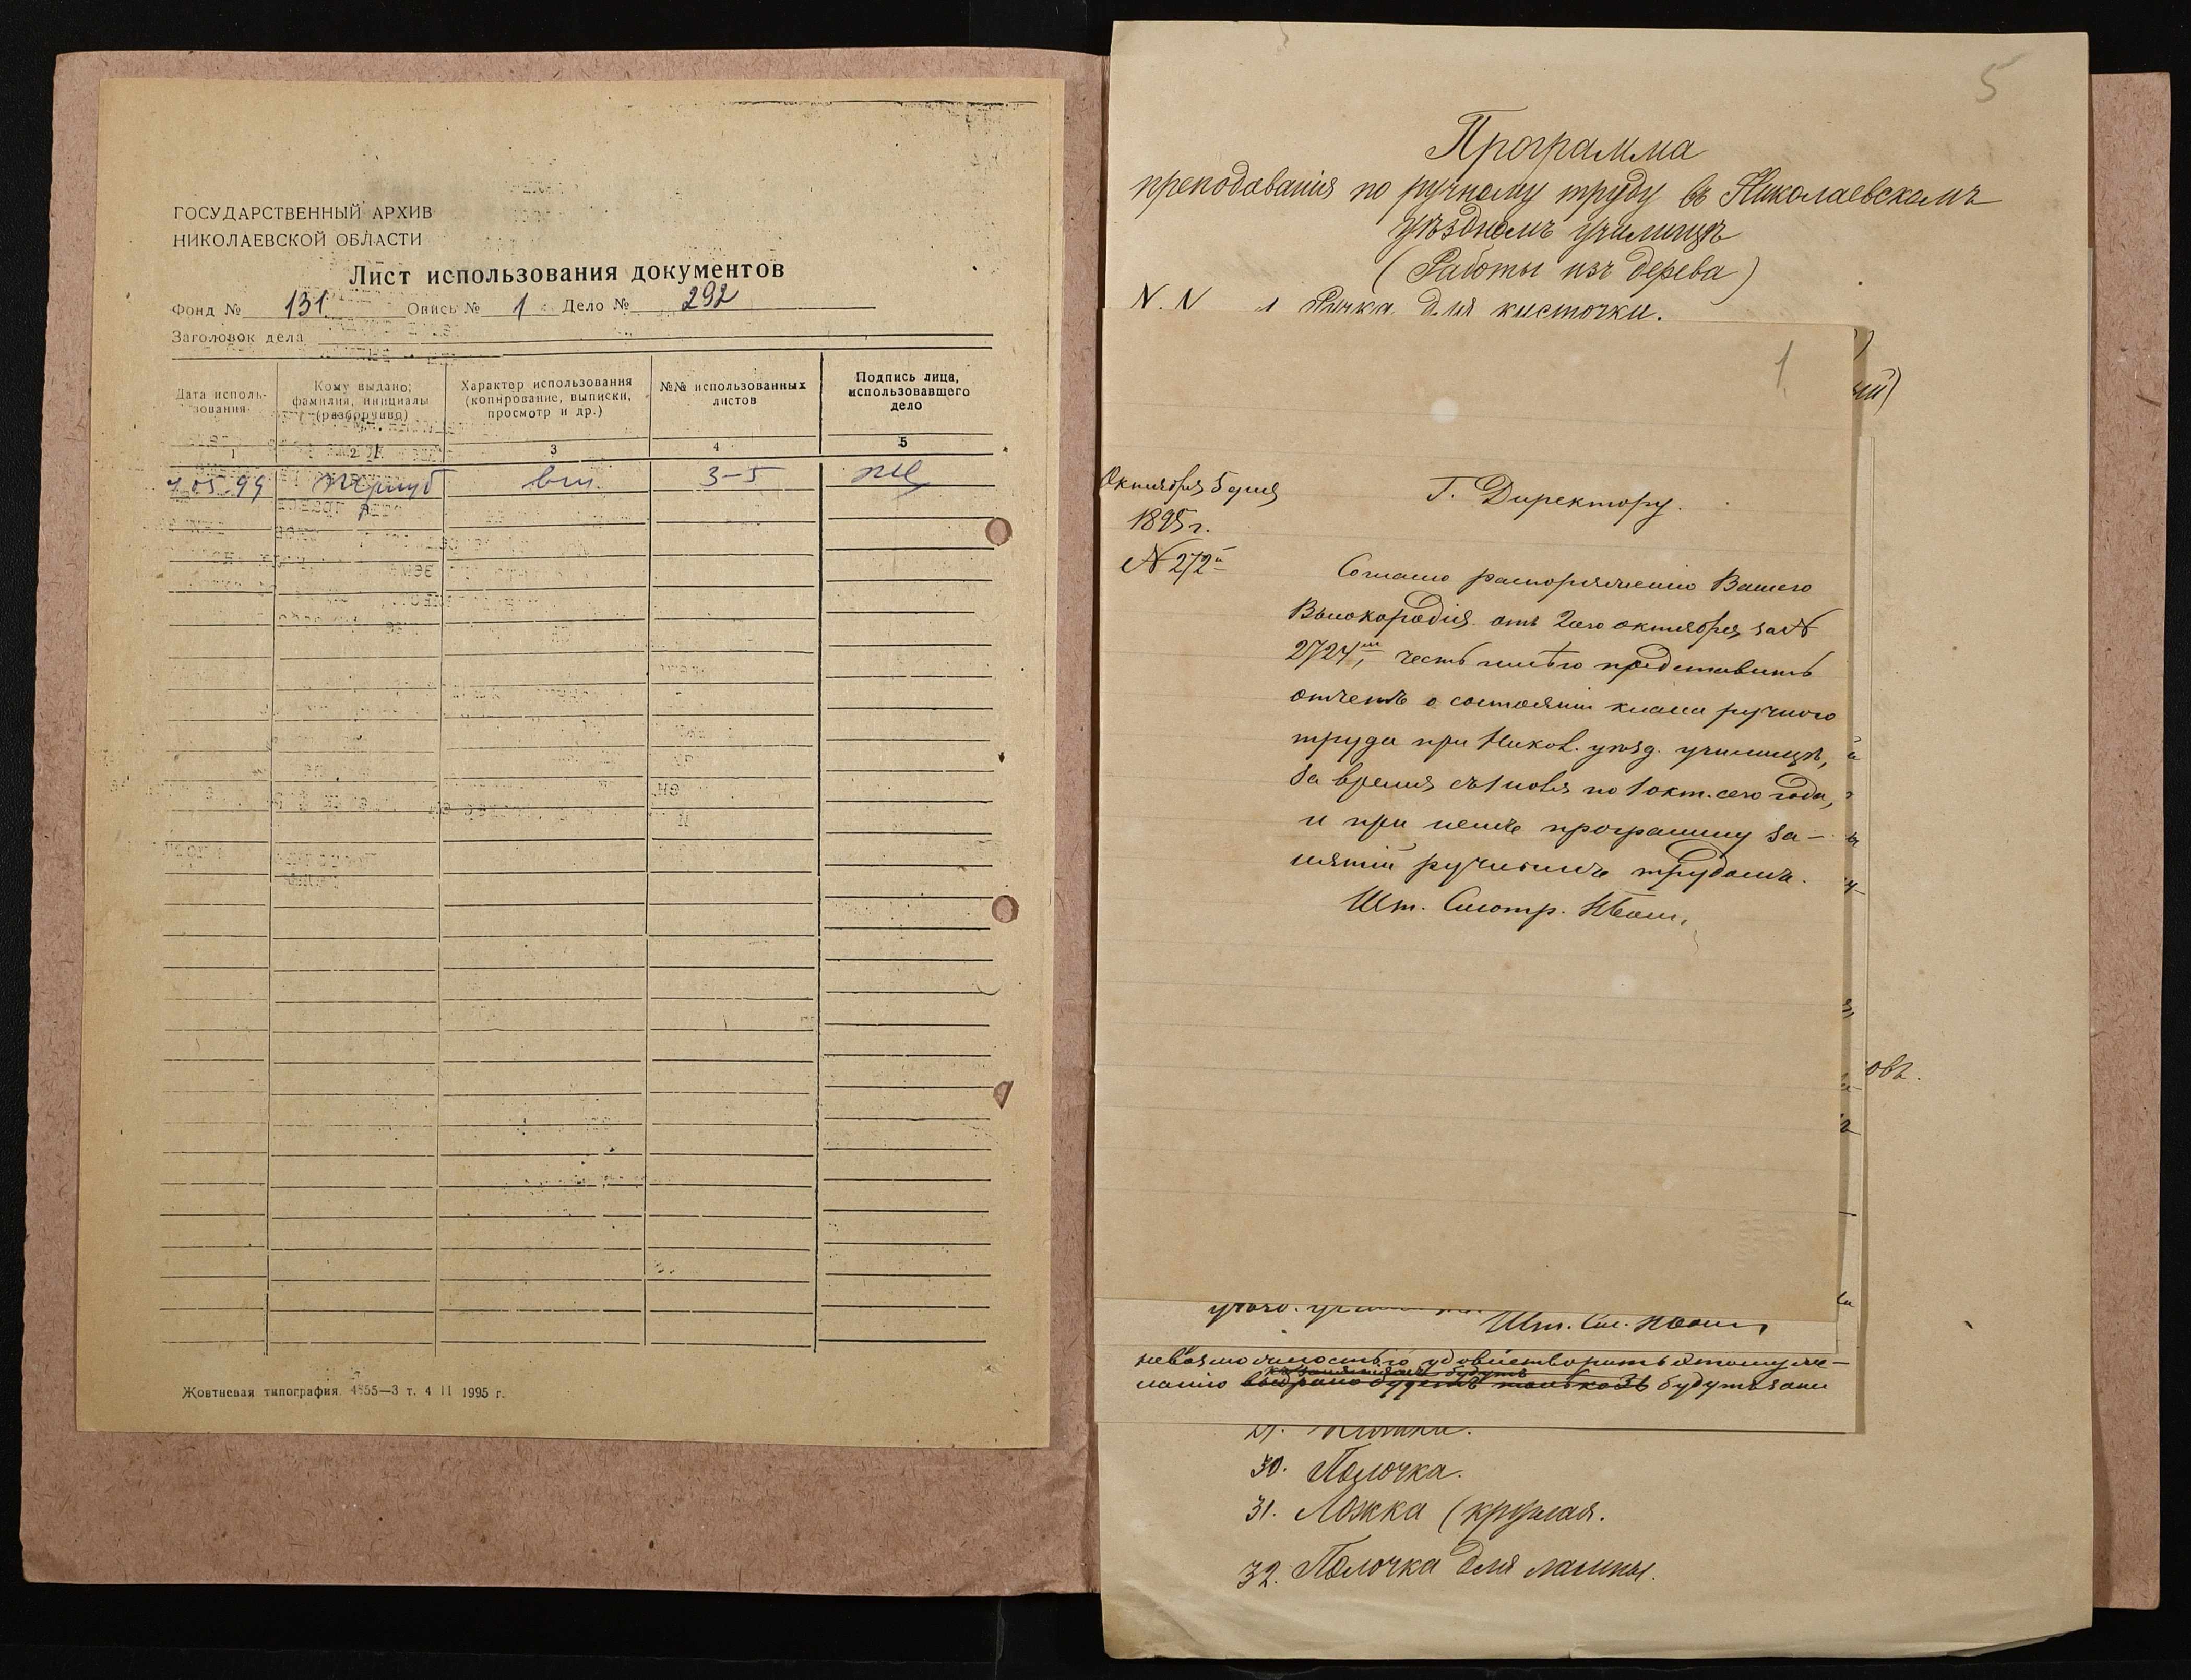 ГОСУДАРСТВЕННЫЙ АРХИВ
НИКОЛАЕВСКОЙ ОБЛАСТИ
Лист использования документов
Фонд № 131 Опись № 1 Дело № 292
Заголовок дела
Дата использования
Кому выдано; фамилия, инициалы (разборчиво)
Характер использования (копирование, выписки, просмотр и др.)
№№ использованных листов
Подпись лица, использовавшего дело
1 2 3 4 5
7.05.99 3-5
Жовтневая типография 4555—3 т. 4 II 1995 г.
5
Программа
преподаванія по ручному труду въ Николаевскомъ
уѣздномъ училищѣ
(Работы изъ дерева)
N. N 1 Ручка для кисточки.
1
Октября 5 дня
1895 г.
N 272й
Г. Директору.
Согласно распоряженію Вашего
Высокородія отъ 2его октября, за N
2724, честь имѣю представить
отчетъ о состояніи класса ручного
труда при Никол. уѣзд. училищѣ,
за время съ 1 нояб. по 1 окт. сего года,
и при немъ программу за-
нятій ручнымъ трудомъ.
Шт. Смотр.
овъ.
Шт. См.
невозможностью удовлетворить этому же-
ланію будутъ
30. Полочка.
31. Ложка (круглая.
32. Полочка для лампы.